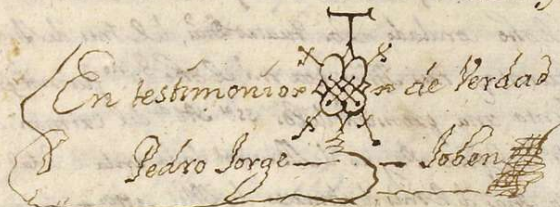 En testimonio de Verdad
Pedro Jorge Joben